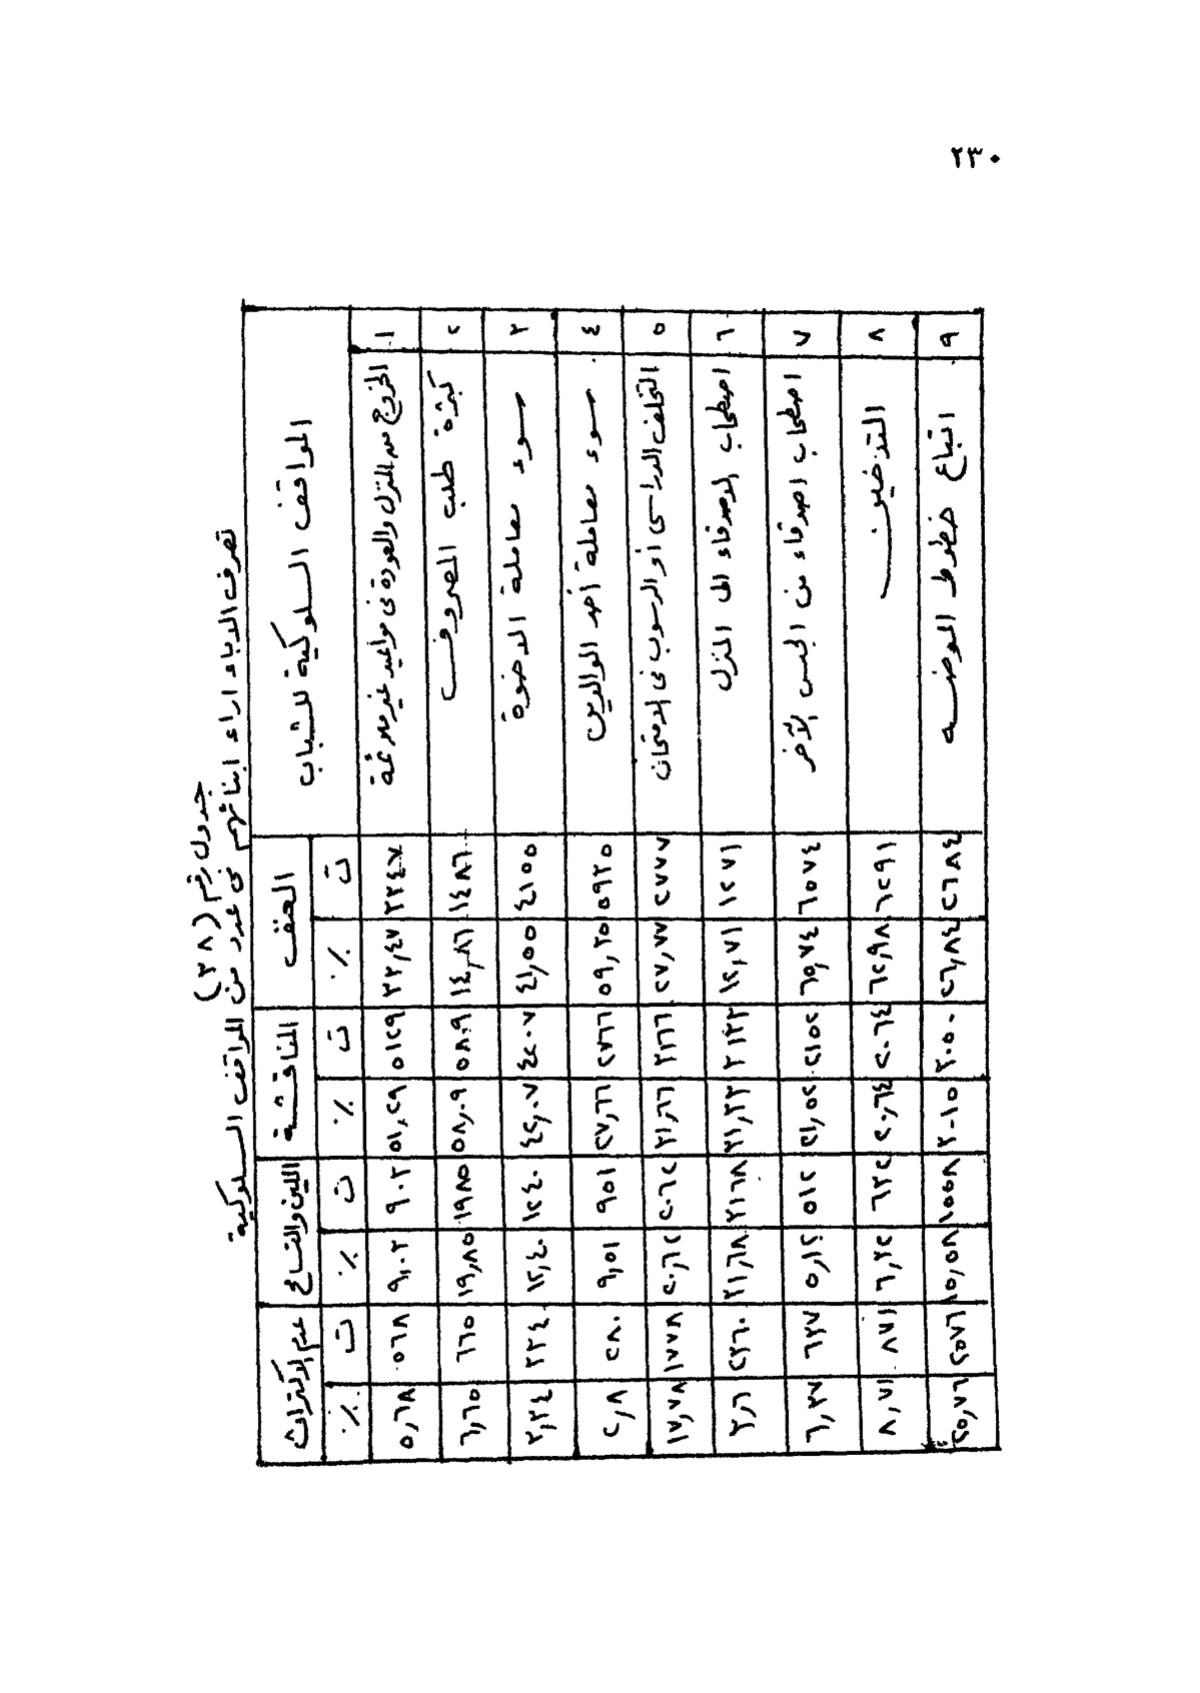 ٢٣٠
جدول رقم (٣٨)
تصرف الاباء ازاء ابنائهم فى عدد من المواقف السلوكية
المواقف السلوكية للشباب | العنف | المناقشة | اللين والتسامح | عدم الاكتراث
ت | ٪ | ت | ٪ | ت | ٪ | ت | ٪
١ | الخروج من المنزل والعودة فى مواعيد غير ملائمة | ٣٣٤٧ | ٣٣,٤٧ | ٥١٢٩ | ٥١,٢٩ | ٩٠٣ | ٩,٠٣ | ٥٦٨ | ٥,٦٨
٢ | كثرة طلب المصروف | ١٤٨٦ | ١٤,٨٦ | ٥٨٠٩ | ٥٨,٠٩ | ١٩٨٥ | ١٩,٨٥ | ٦٦٥ | ٦,٦٥
٣ | سوء معاملة الاخوة | ٤١٥٥ | ٤١,٥٥ | ٤٢٠٧ | ٤٢,٠٧ | ١٢٤٠ | ١٢,٤٠ | ٣٣٤ | ٣,٣٤
٤ | سوء معاملة أحد الوالدين | ٥٩٣٥ | ٥٩,٣٥ | ٢٧٦٦ | ٢٧,٦٦ | ٩٥١ | ٩,٥١ | ٢٨٠ | ٢,٨
٥ | التخلف الدراسى أو الرسوب فى الامتحان | ٢٧٧٧ | ٢٧,٧٧ | ٣١٦٦ | ٣١,٦٦ | ٢٠٦٢ | ٢٠,٦٢ | ١٧٧٨ | ١٧,٧٨
٦ | اصطحاب الاصدقاء الى المنزل | ١٢٧١ | ١٢,٧١ | ٣١٣٣ | ٣١,٣٣ | ٣١٦٨ | ٣١,٦٨ | ٢٣٦٠ | ٣,٦
٧ | اصطحاب اصدقاء من الجنس الآخر | ٦٥٧٤ | ٦٥,٧٤ | ٢١٥٢ | ٢١,٥٢ | ٥١٢ | ٥,١٢ | ٦٣٧ | ٦,٣٧
٨ | التدخين | ٦٢٩١ | ٦٢,٩٨ | ٢٠٦٤ | ٢٠,٦٤ | ٦٣٢ | ٦,٣٢ | ٨٧١ | ٨,٧١
٩ | اتباع خطوط الموضه | ٢٦٨٤ | ٢٦,٨٤ | ٣٠٥٠ | ٣٠١٥ | ١٥٥٨ | ١٥,٥٨ | ٢٥٧٦ | ٢٥,٧٦